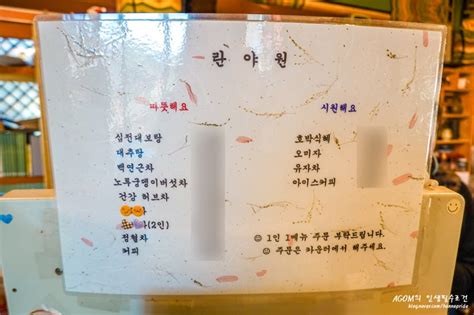 란야원
따뜻해요
십전대보탕
대추탕
백연근차
노루궁뎅이버섯차
건강 허브차
차(2인)
점첩차
커피
시원해요
호박식혜
오미자
유자차
아이스커피
1인 1메뉴 주문 부탁드립니다.
주문은 카운터에서 해주세요.
AGOM의 인생필수조건